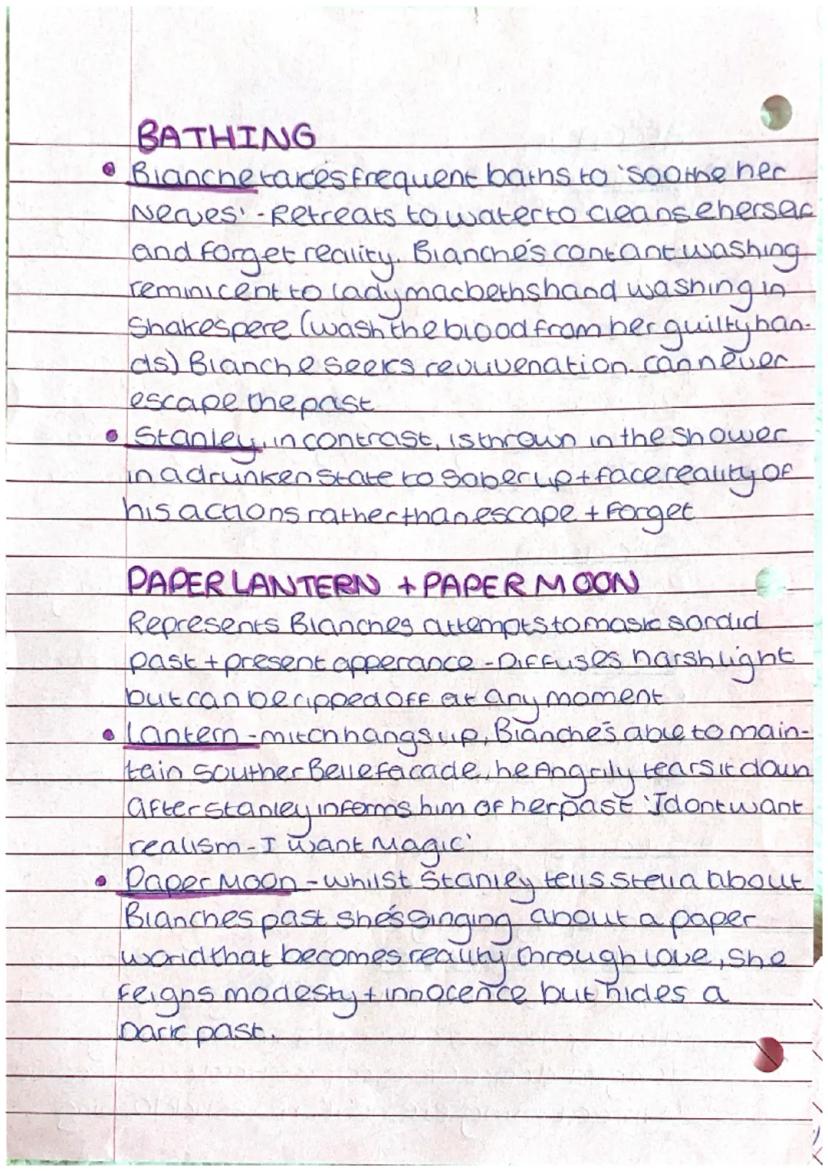 BATHING
Blanche takes frequent baths to 'soothe her
nerves' - Retreats to water to cleanse herself
and forget reality. Blanche's contant washing
reminicent to lady macbeths hand washing in
Shakespere (wash the blood from her guilty han-
ds) Blanche seeks revuvenation. can never
escape the past
Stanley, in contrast, is thrown in the shower
in a drunken state to sober up + face reality of
his actions rather than escape + forget
PAPER LANTERN + PAPER MOON
Represents Blanches attempts to mask sordid
past + present apperance - Diffuses harsh light
but can be ripped off at any moment
Lantern - mitch hangs up, Blanche's able to main-
tain souther Belle facade, he Angrily tears it down
after stanley informs him of her past 'I dont want
realism - I want Magic'
Paper Moon - whilst Stanley tells stella about
Blanches past she's singing about a paper
world that becomes reality through love, she
feigns modesty + innocence but hides a
Dark past.